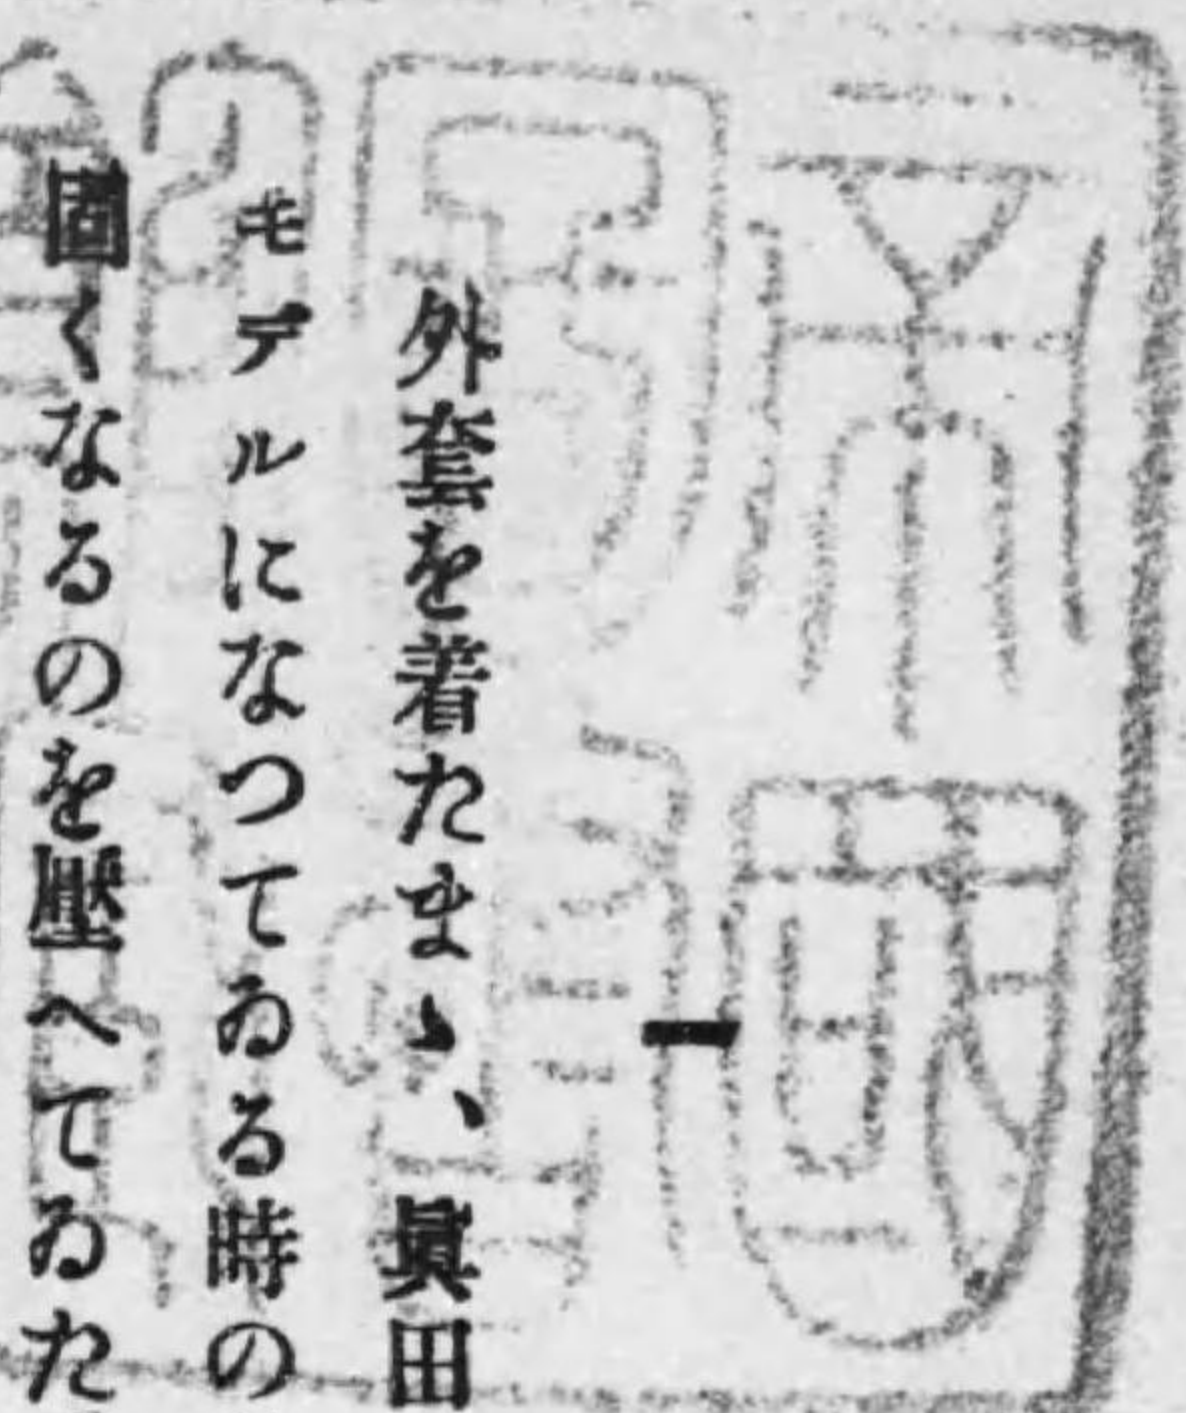 一
外套を着たまゝ、眞田
モデルになつてゐる時の
固くなるのを壓へてゐた